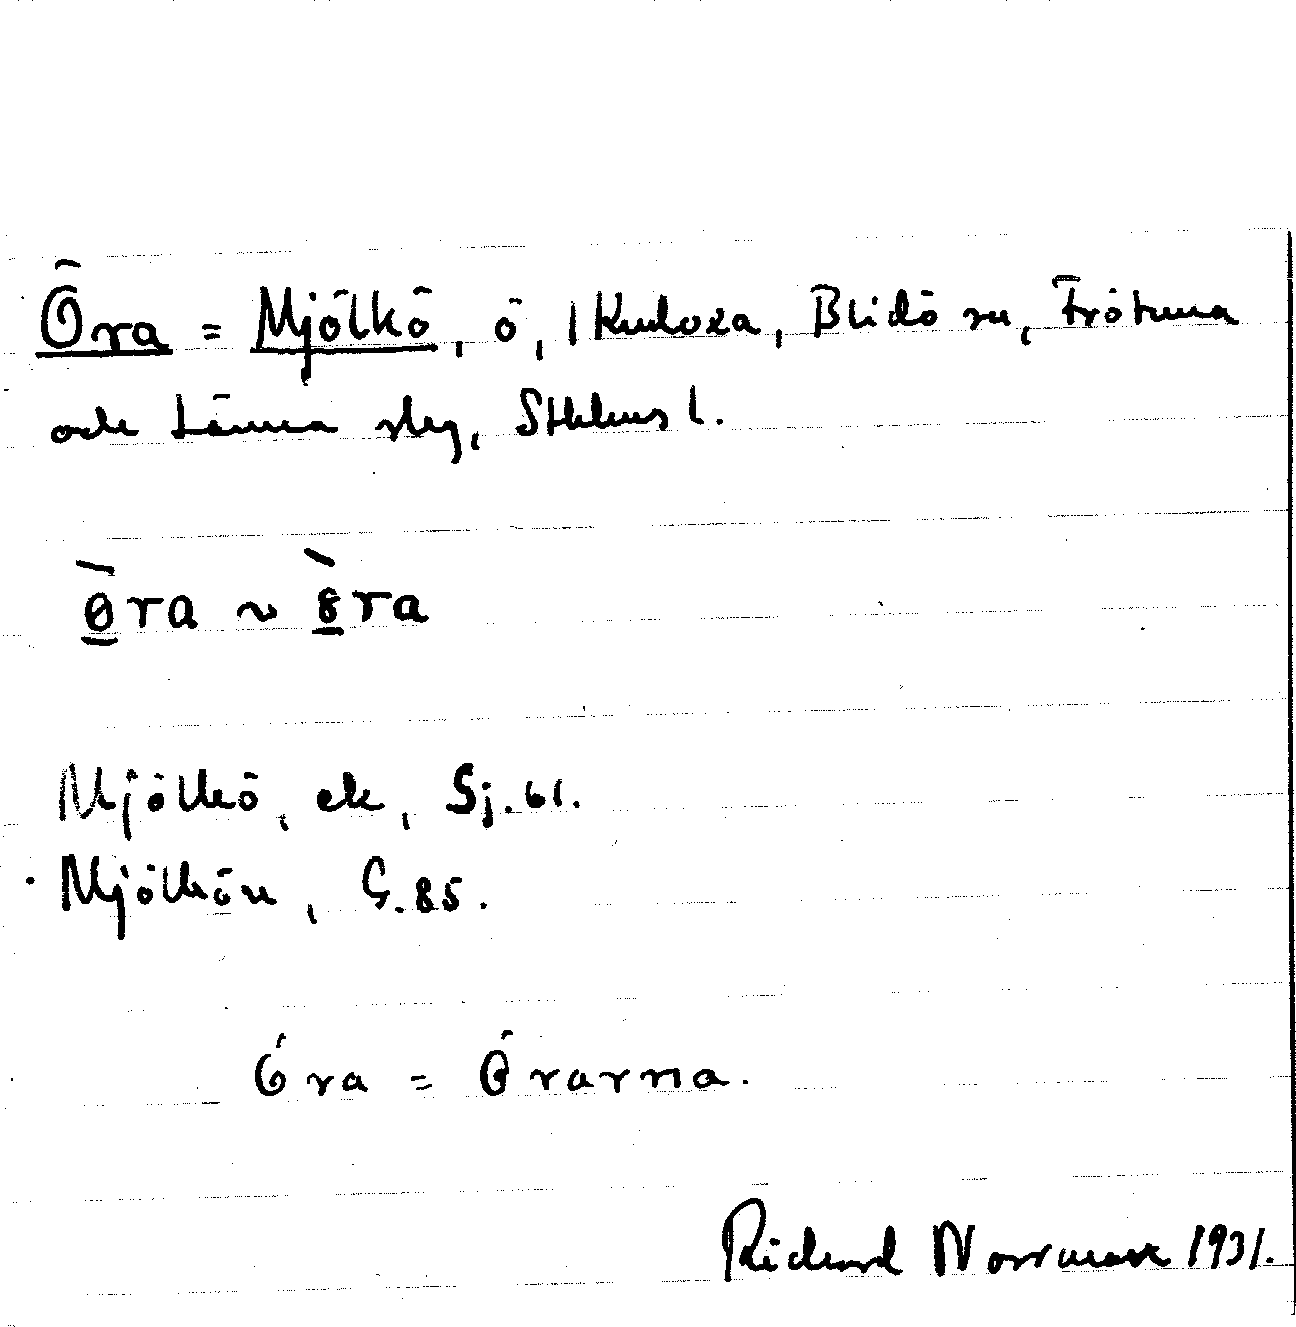 Öra = Mjölkö, ö, 1 Kudoxa, Blidö sn, Frötuna
och Länna slg, Sthlms l.
ø̀ra ~ ra
Mjölkö, ek, Sj. 61.
Mjölkön, G. 85.
Öra = Örarna.
Richard Norrman 1931.